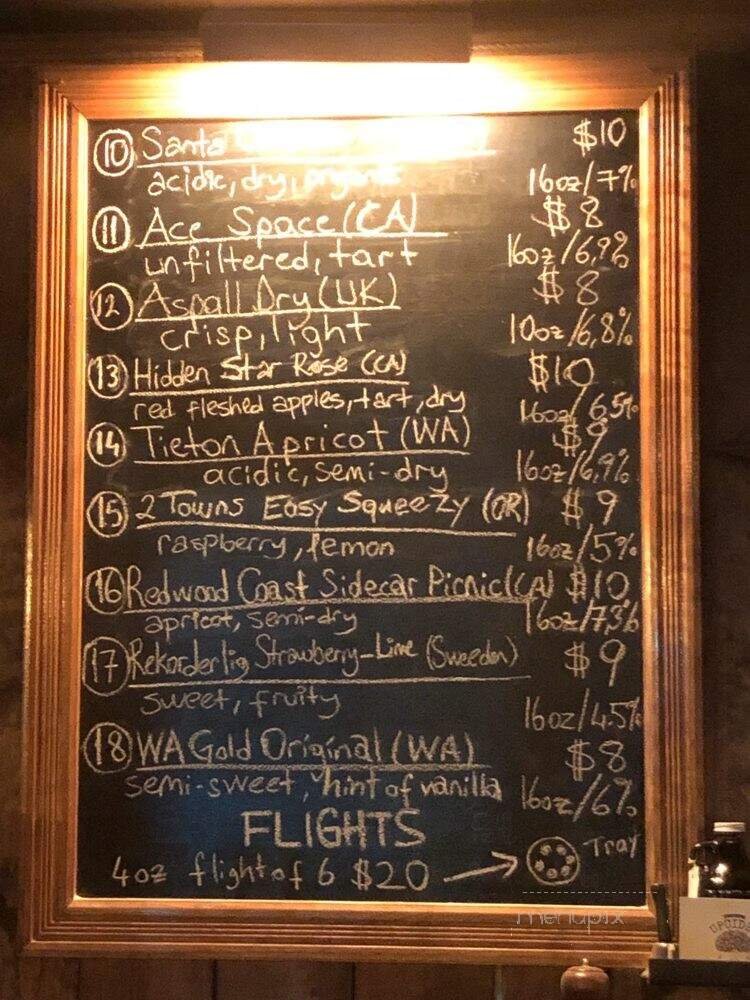 10 Santa $10
acidic, dry, organic 16oz/7%
11 Ace Space (CA) $8
unfiltered, tart 16oz/6,9%
12 Aspall Dry (UK) $8
crisp, light 10oz/6,8%
13 Hidden Star Rose (CA) $10
red fleshed apples, tart, dry 16oz/6.5%
14 Tieton Apricot (WA) $9
acidic, semi-dry 16oz/6,9%
15 2 Towns Easy Squeezy (OR) $9
raspberry, lemon 16oz/5%
16 Redwood Coast Sidecar Picnic (CA) $10
apricot, semi-dry 16oz/7,3%
17 Rekorderlig Strawberry-Lime (Sweeden) $9
sweet, fruity 16oz/4.5%
18 WA Gold Original (WA) $8
semi-sweet, hint of vanilla 16oz/6%
FLIGHTS
4oz flight of 6 $20 → Tray
menupix
UPCIDER